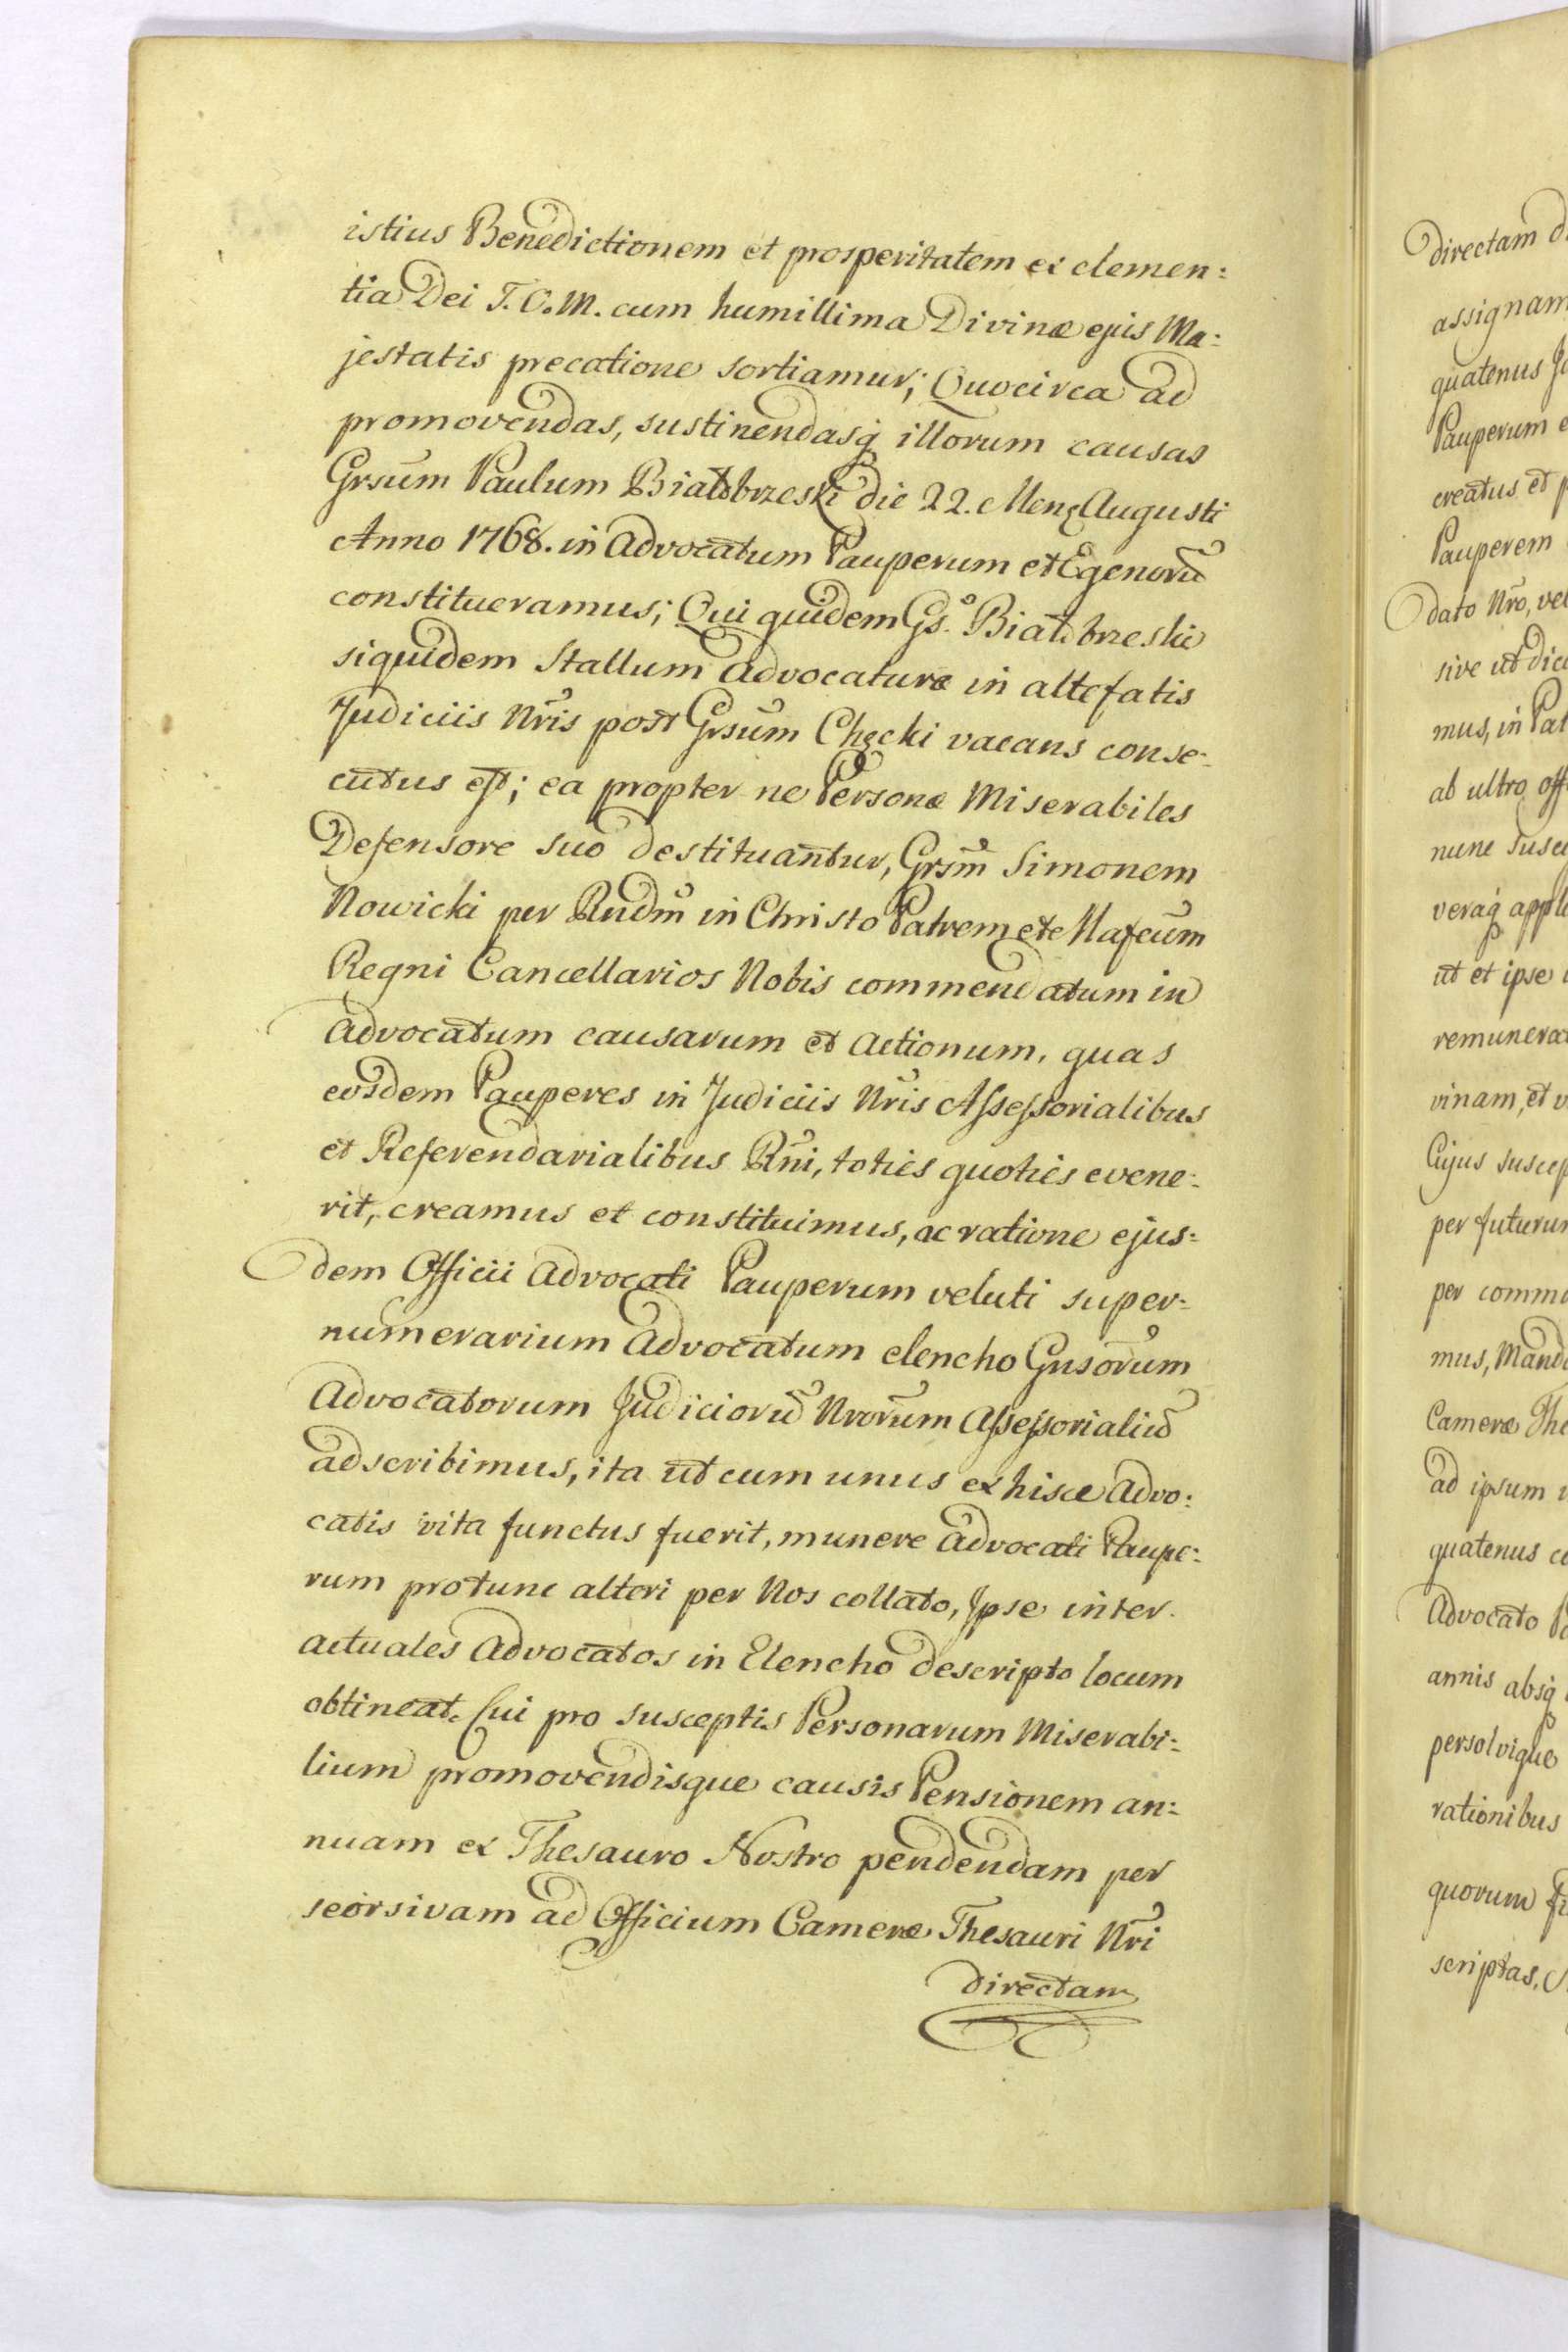 istius Benedictionem et prosperitatem ex clemen:
tia Dei T.O.M. cum humillima Divinæ ejus Ma:
jestatis precatione sortiamur; Quocirca ad
promovendas, sustinendasq illorum causas
Grsum Paulum Białobrzeski die 22. Mens Augusti
Anno 1768. in Advocatum Pauperum et Egenorū
constitueramus; Qui quidem Gs. Białobrzeski
siquidem Stallum Advocaturæ in altefatis
Judiciis Nris post Grsum Chęcki vacans conse:
cutus est; ea propter ne Personæ Miserabiles
Defensore suo destituantur, Grsm Simonem
Nowicki per Rndm in Christo Patrem et Magcum
Regni Cancellarios Nobis commendatum in
Advocatum causarum et Actionum, quas
eosdem Pauperes in Judiciis Nris Assessorialibus
et Referendarialibus Rni, toties quoties evene:
rit, creamus et constituimus, ac ratione ejus:
dem Officii Advocati Pauperum veluti super:
numerarium Advocatum elencho Gnsorum
Advocatorum Judiciorū Nrorum Assessorialiū
adscribimus, ita ut cum unus ex hisce Advo:
catis vita functus fuerit, munere Advocati Paupe:
rum protunc alteri per Nos collato, Ipse inter
actuales Advocatos in Elencho descripto locum
obtineat. Cui pro susceptis Personarum Miserabi:
lium promovendisque causis Pensionem an:
nuam ex Thesauro Nostro pendendam per
seorsivam ad Officium Cameræ Thesauri Nri
directam
directam
assignam
quatenus
Pauperum
creatus et
Pauperem
dato Nro, vel
sive ut
mus, in
ab ultro
nunc
veraq
ut et ipse
vinam, et
Cujus
per
per
mus,
Cameræ
ad ipsum
quatenus
Advocato
annis absq
persolvique
rationibus
quorum
scriptas.